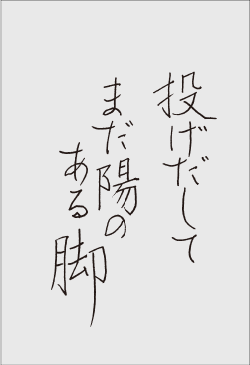 投げだして
まだ陽の
ある脚